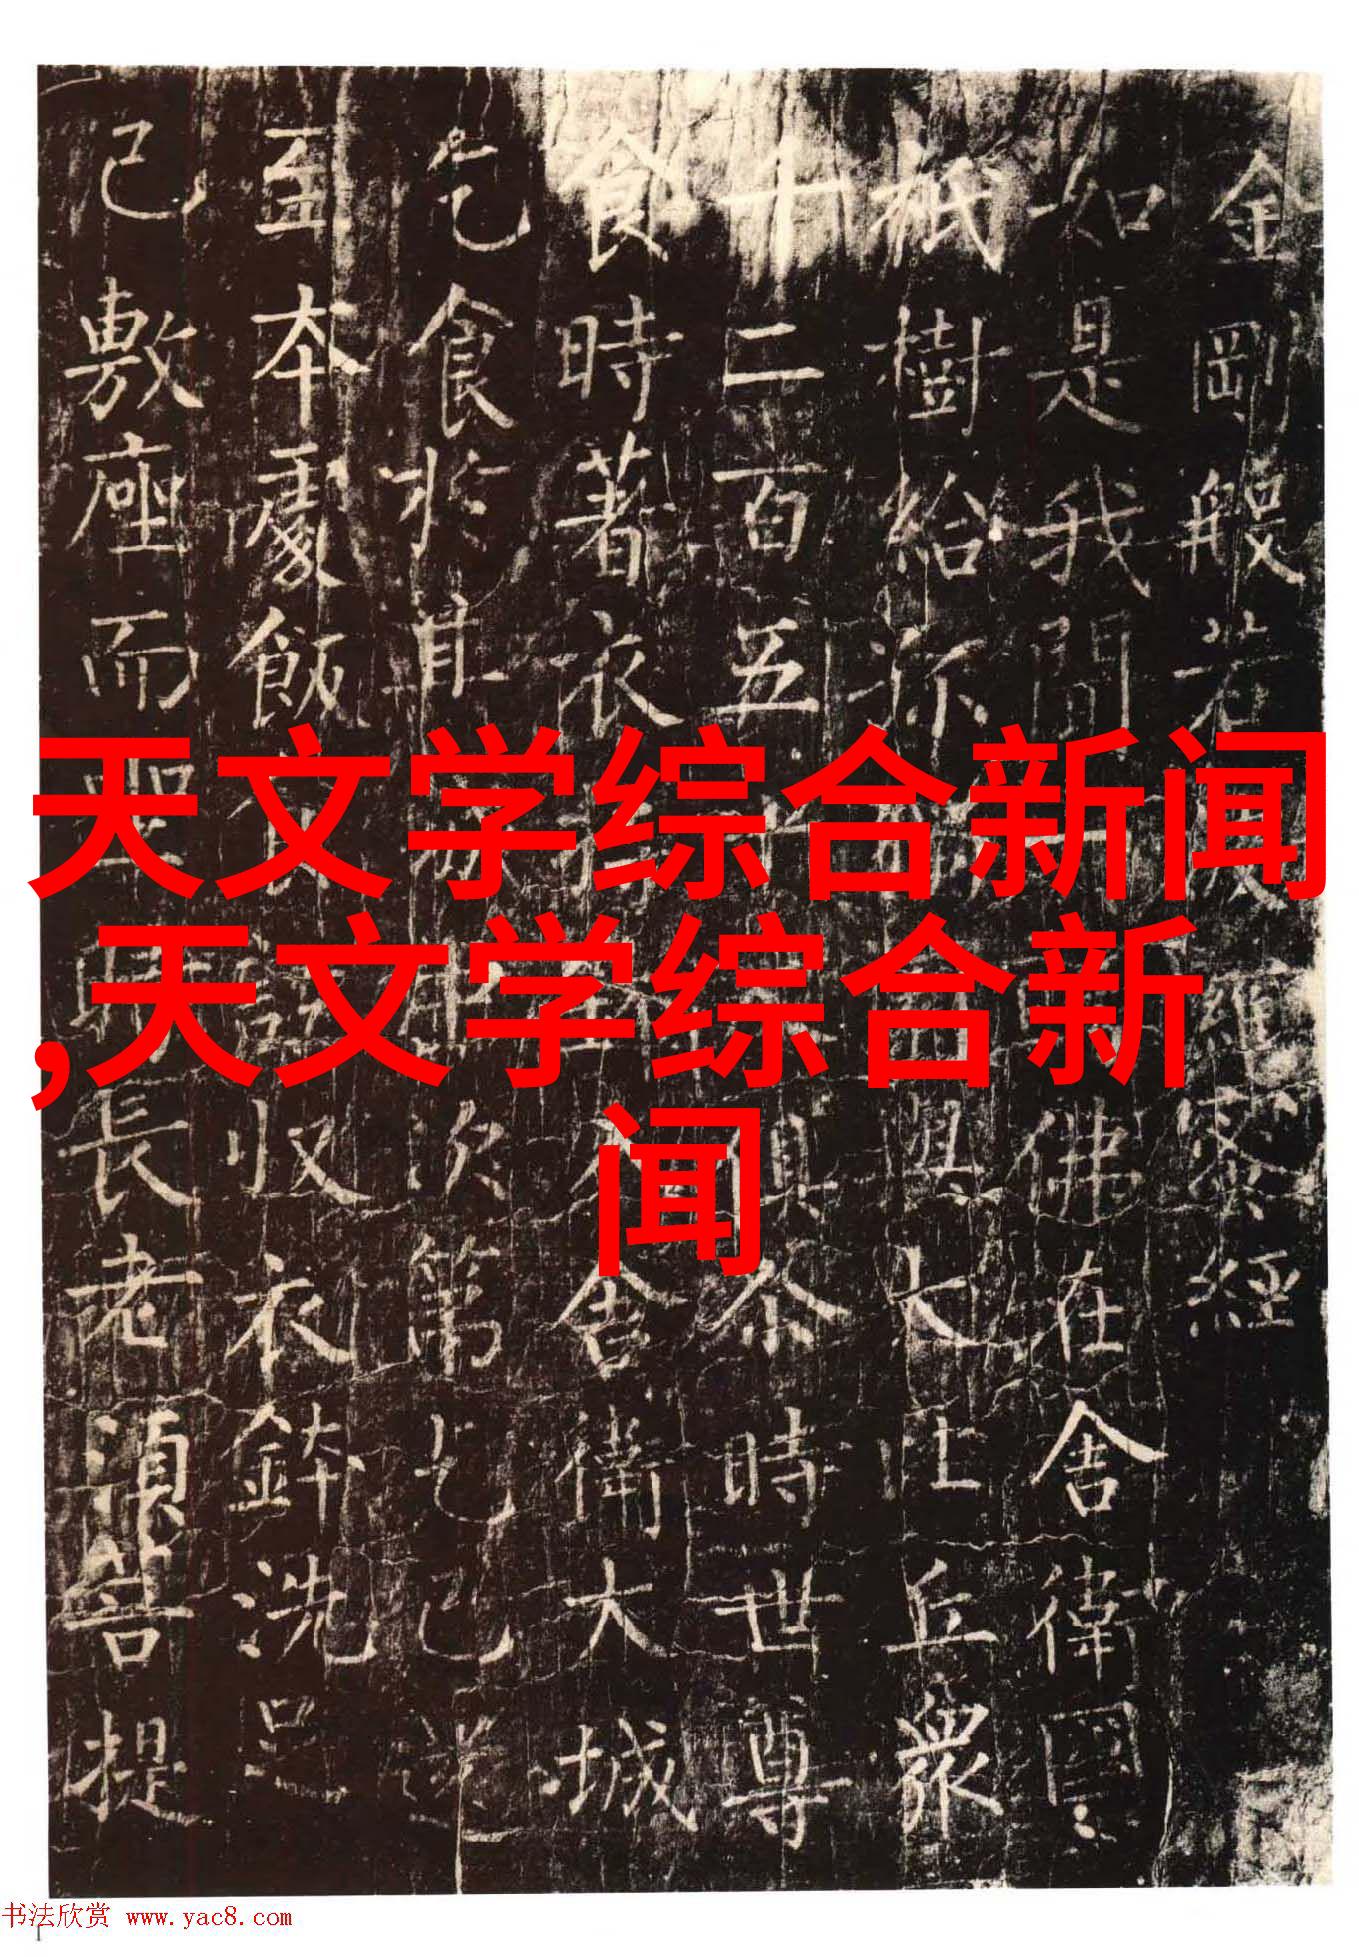 天文学综合新闻
,天文学综合新
闻
金剛般若羅蜜經
如是我聞佛在舍衛國
祇樹給大比丘眾
二百五俱尒時世尊
食時著衣舍衛大城
乞食於其次第乞已還
至本處飯收衣鉢洗足
已敷座而長老須菩提
书法欣赏 www.yac8.com